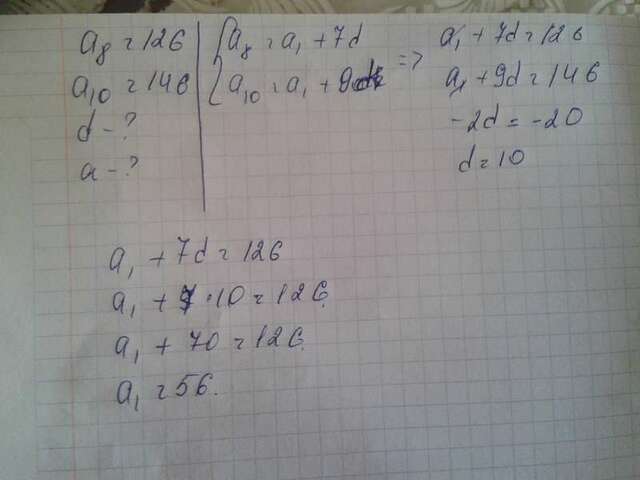 a₈ = 126
a₁₀ = 146
d - ?
a - ?
{ a₈ = a₁ + 7d
a₁₀ = a₁ + 9d
=>
a₁ + 7d = 126
a₁ + 9d = 146
-2d = -20
d = 10
a₁ + 7d = 126
a₁ + 7 · 10 = 126.
a₁ + 70 = 126.
a₁ = 56.